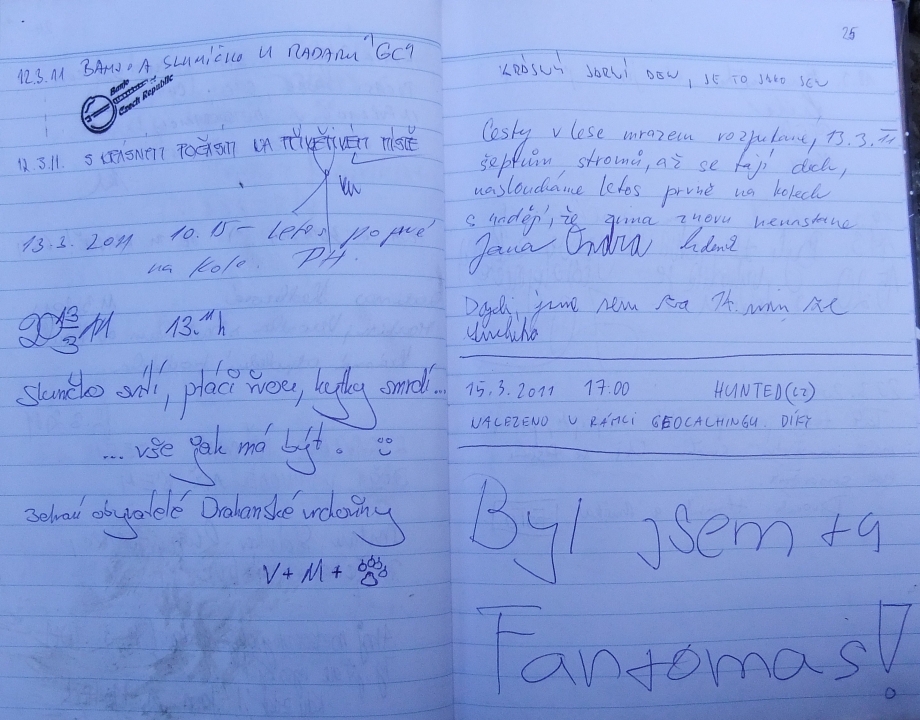 12.3.11 BANJO A SLUNÍČKO U RADARU "GC"
Banjo
Czech Republic
12.3.11. S KRÁSNÉM POČASÍM NA PŘÍVĚTIVÉM MÍSTĚ
13.3. 2011 10.15 - Letos poprvé
na kole. PH.
20 13/3 11 13.11 h
Sluníčko svítí, ptáčci řvou, kytky smrdí...
... vše jak má být.
Zdraví obyvatelé Drahanské vrchoviny
V + M +
25
KRÁSNÝ JARNÍ DEN, JE TO JAKO SEN
Cesty v lese mrazem rozpukané, 13.3.11
šeptům stromů, až se tají dech,
nasloucháme letos prvně na kolech
s nadějí, že zima znovu nenastane
Jana Ondra
jsme sem za 14. min, ze
15.3.2011 17:00 HUNTED(CZ)
NALEZENO V RÁMCI GEOCACHINGU. DÍKY
Byl jsem ta
Fantomas!